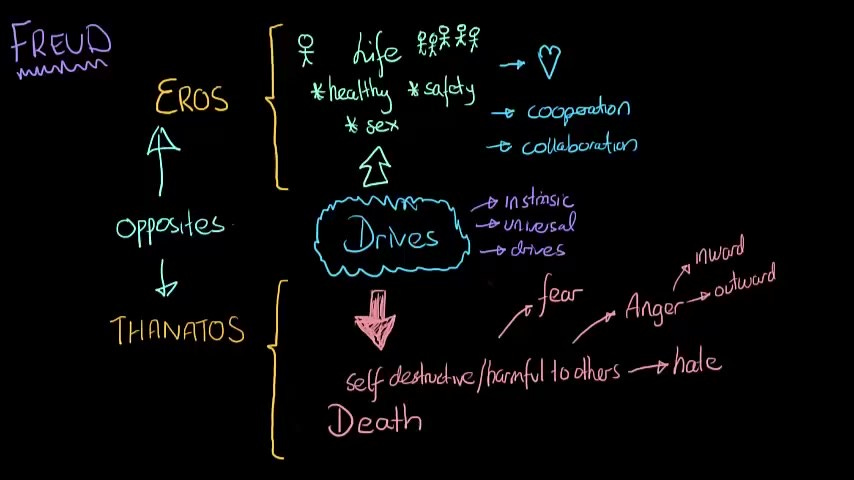 FREUD
EROS
Life
*healthy *safety
*sex
→ ♡
→ cooperation
→ collaboration
opposites
Drives
→ instrisic
→ universal
→ drives
THANATOS
fear
Anger
inward
outward
self destructive/harmful to others → hate
Death